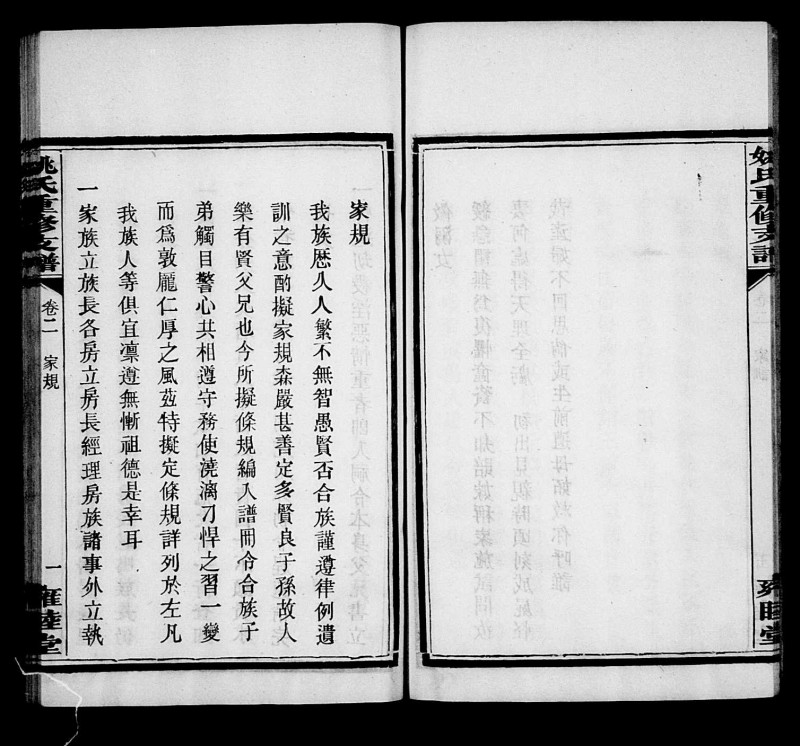 姚氏重修支譜
雍睦堂
家規
我族歷久人繁不無智愚賢否合族謹遵律例遺
訓之意酌擬家規森嚴甚善定多賢良子孫故人
樂有賢父兄也今所擬條規編入譜冊令合族子
弟觸目警心共相遵守務使澆漓刁悍之習一變
而爲敦龐仁厚之風茲特擬定條規詳列於左凡
我族人等俱宜凜遵無慚祖德是幸耳
一家族立族長各房立房長經理房族諸事外立執
姚氏重修支譜
卷二
家規
一
雍睦堂